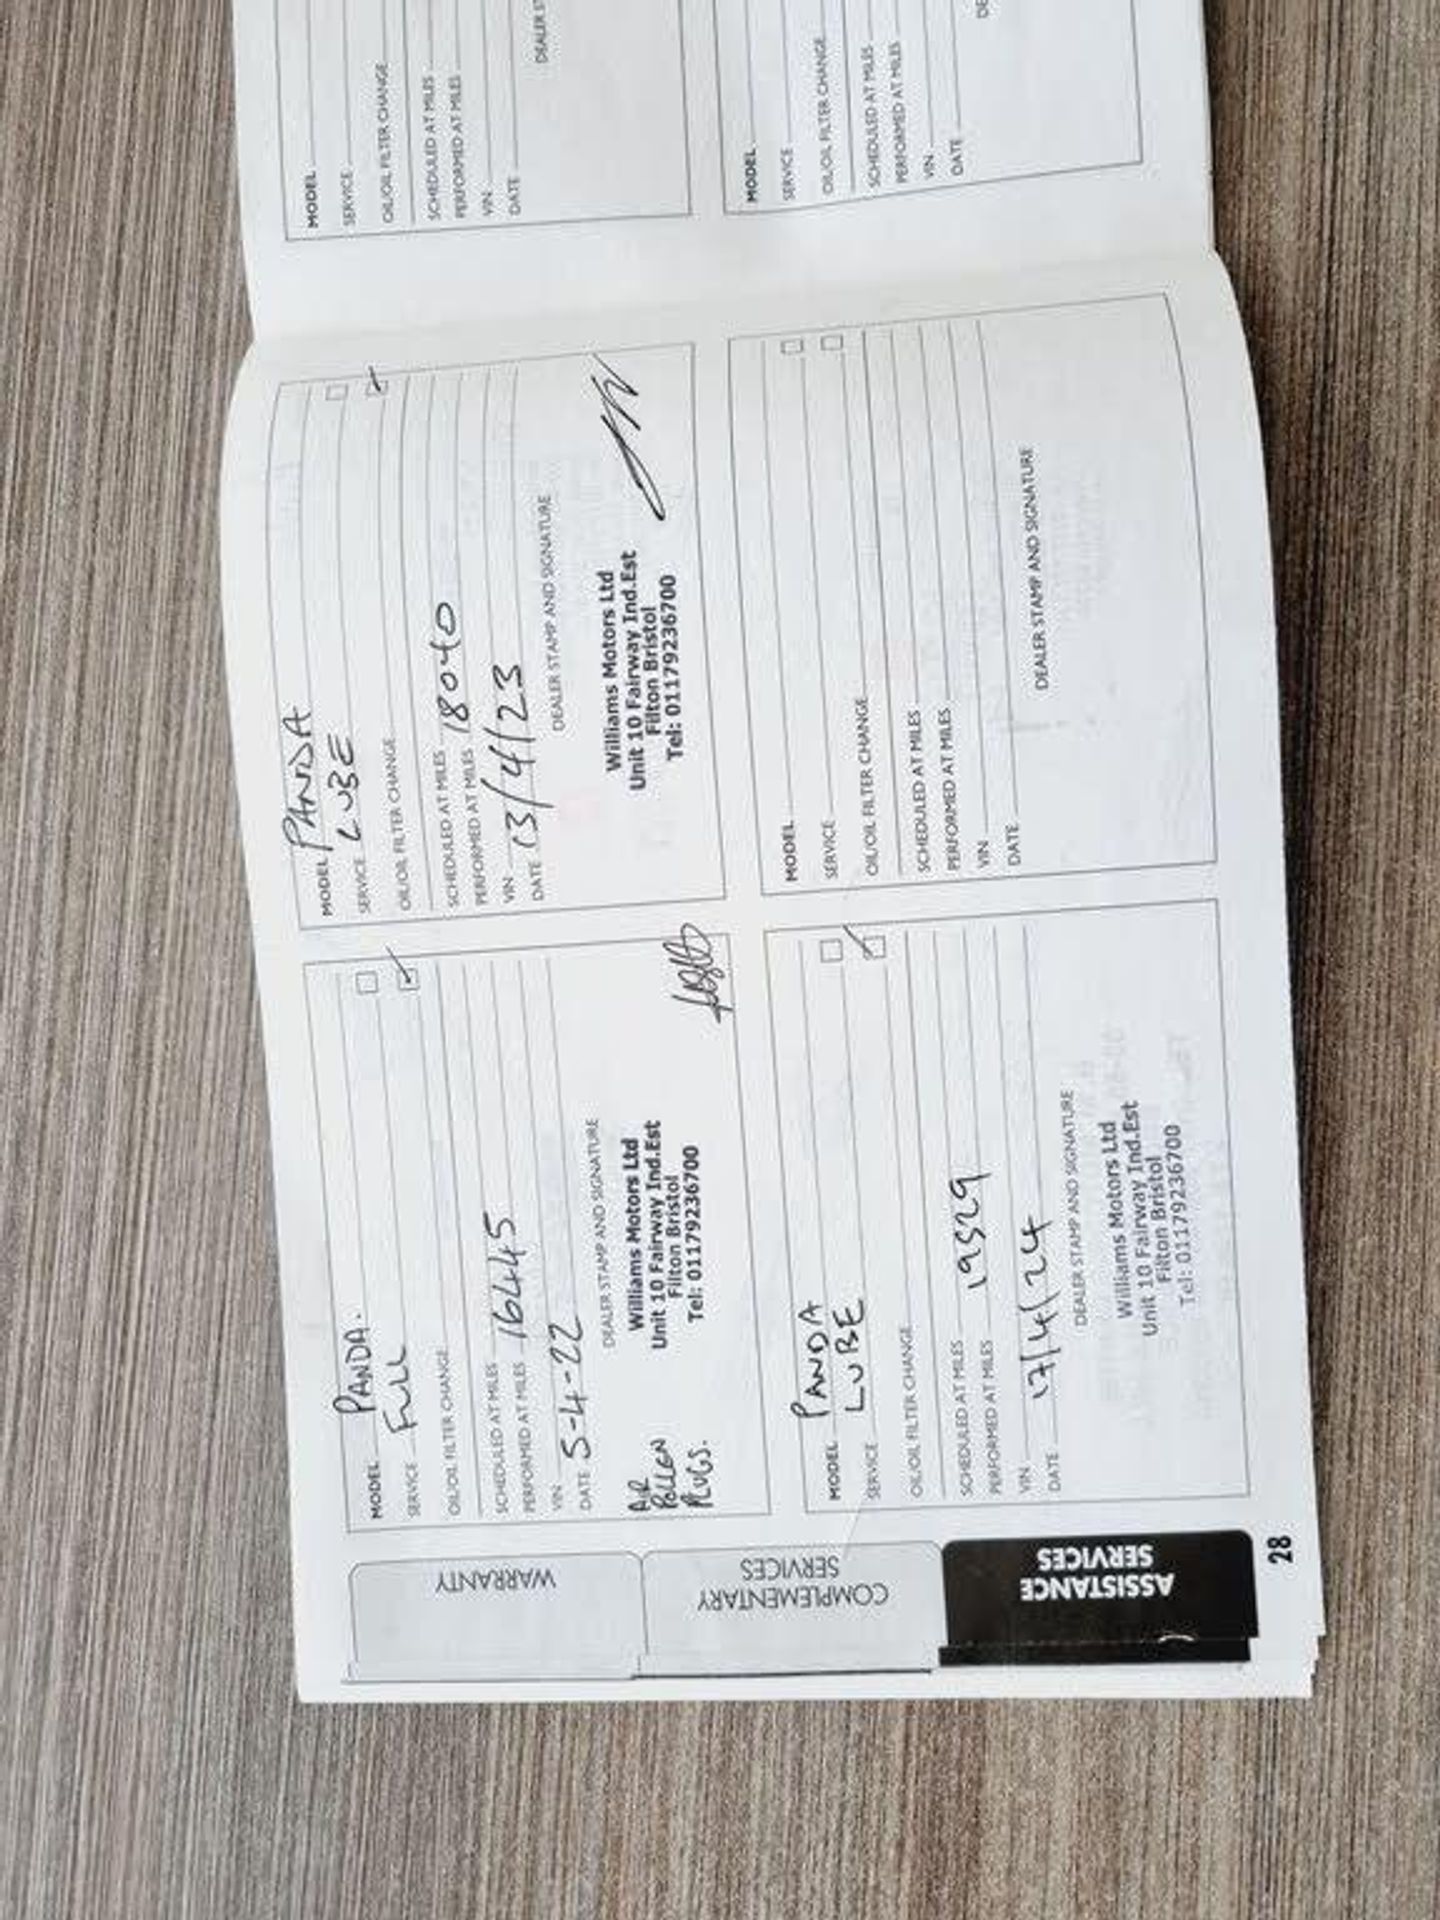 MODEL PANDA.
SERVICE FULL
OIL/OIL FILTER CHANGE
SCHEDULED AT MILES
PERFORMED AT MILES 16445
VIN
DATE 5-4-22
DEALER STAMP AND SIGNATURE
AIR
POLLEN
PLUGS.
Williams Motors Ltd
Unit 10 Fairway Ind.Est
Filton Bristol
Tel: 01179236700
MODEL PANDA
SERVICE LUBE
OIL/OIL FILTER CHANGE
SCHEDULED AT MILES
PERFORMED AT MILES 18040
VIN
DATE 13/4/23
DEALER STAMP AND SIGNATURE
Williams Motors Ltd
Unit 10 Fairway Ind.Est
Filton Bristol
Tel: 01179236700
MODEL PANDA
SERVICE LUBE
OIL/OIL FILTER CHANGE
SCHEDULED AT MILES
PERFORMED AT MILES
VIN
DATE 17/4/24
DEALER STAMP AND SIGNATURE
Williams Motors Ltd
Unit 10 Fairway Ind.Est
Filton Bristol
Tel: 01179236700
MODEL
SERVICE
OIL/OIL FILTER CHANGE
SCHEDULED AT MILES
PERFORMED AT MILES
VIN
DATE
DEALER STAMP AND SIGNATURE
MODEL
SERVICE
OIL/OIL FILTER CHANGE
SCHEDULED AT MILES
PERFORMED AT MILES
VIN
DATE
DEALER
MODEL
SERVICE
OIL/OIL FILTER CHANGE
SCHEDULED AT MILES
PERFORMED AT MILES
VIN
DATE
WARRANTY
COMPLEMENTARY
SERVICES
ASSISTANCE
SERVICES
28